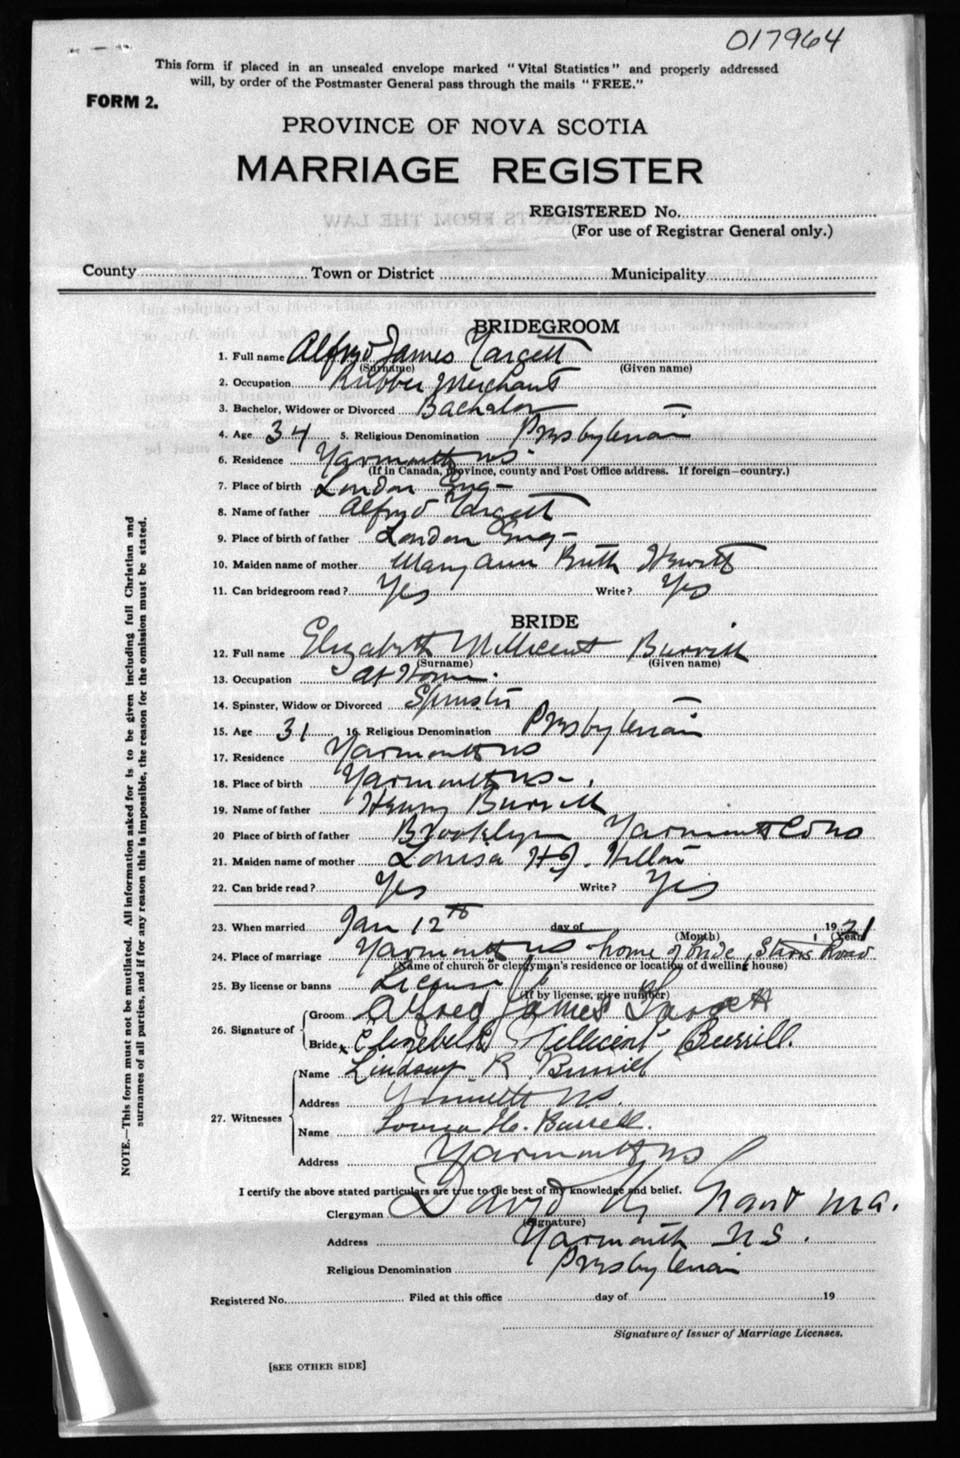 017964
This form if placed in an unsealed envelope marked "Vital Statistics" and properly addressed
will, by order of the Postmaster General pass through the mails "FREE."
FORM 2.
PROVINCE OF NOVA SCOTIA
MARRIAGE REGISTER
REGISTERED No.
(For use of Registrar General only.)
County Town or District Municipality
BRIDEGROOM
1. Full name Alfred James Targett
(Surname) (Given name)
2. Occupation Rubber Merchant
3. Bachelor, Widower or Divorced Bachelor
4. Age 34 5. Religious Denomination Presbyterian
6. Residence Yarmouth NS.
(If in Canada, province, county and Post Office address. If foreign—country.)
7. Place of birth London Eng—
8. Name of father Alfred Targett
9. Place of birth of father London Eng—
10. Maiden name of mother Mary Ann Ruth Hewitt
11. Can bridegroom read? Yes Write? Yes
BRIDE
12. Full name Elizabeth Millicent Burrill
(Surname) (Given name)
13. Occupation At Home.
14. Spinster, Widow or Divorced Spinster
15. Age 31 16. Religious Denomination Presbyterian
17. Residence Yarmouth NS
18. Place of birth Yarmouth NS—.
19. Name of father Henry Burrill
20 Place of birth of father Brooklyn Yarmouth Co NS
21. Maiden name of mother Louisa H.J.
22. Can bride read? Yes Write? Yes
23. When married Jan 12th day of 1921
(Month) (Year)
24. Place of marriage Yarmouth NS home of bride, Starrs Road
(Name of church or clergyman's residence or location of dwelling house)
25. By license or banns License
(If by license, give number)
26. Signature of Groom Alfred James Targett
Bride x Elizabeth Millicent Burrill.
27. Witnesses Name Lindsay R. Burrill
Address Yarmouth NS.
Name Louisa H. Burrell.
Address Yarmouth NS
I certify the above stated particulars are true to the best of my knowledge and belief.
Clergyman David Grant M.A.
(Signature)
Address Yarmouth N.S.
Religious Denomination Presbyterian
Registered No. Filed at this office day of 19
Signature of Issuer of Marriage Licenses.
[SEE OTHER SIDE]
NOTE.—This form must not be mutilated. All information asked for is to be given including full Christian and
surnames of all parties, and if for any reason this is impossible, the reason for the omission must be stated.